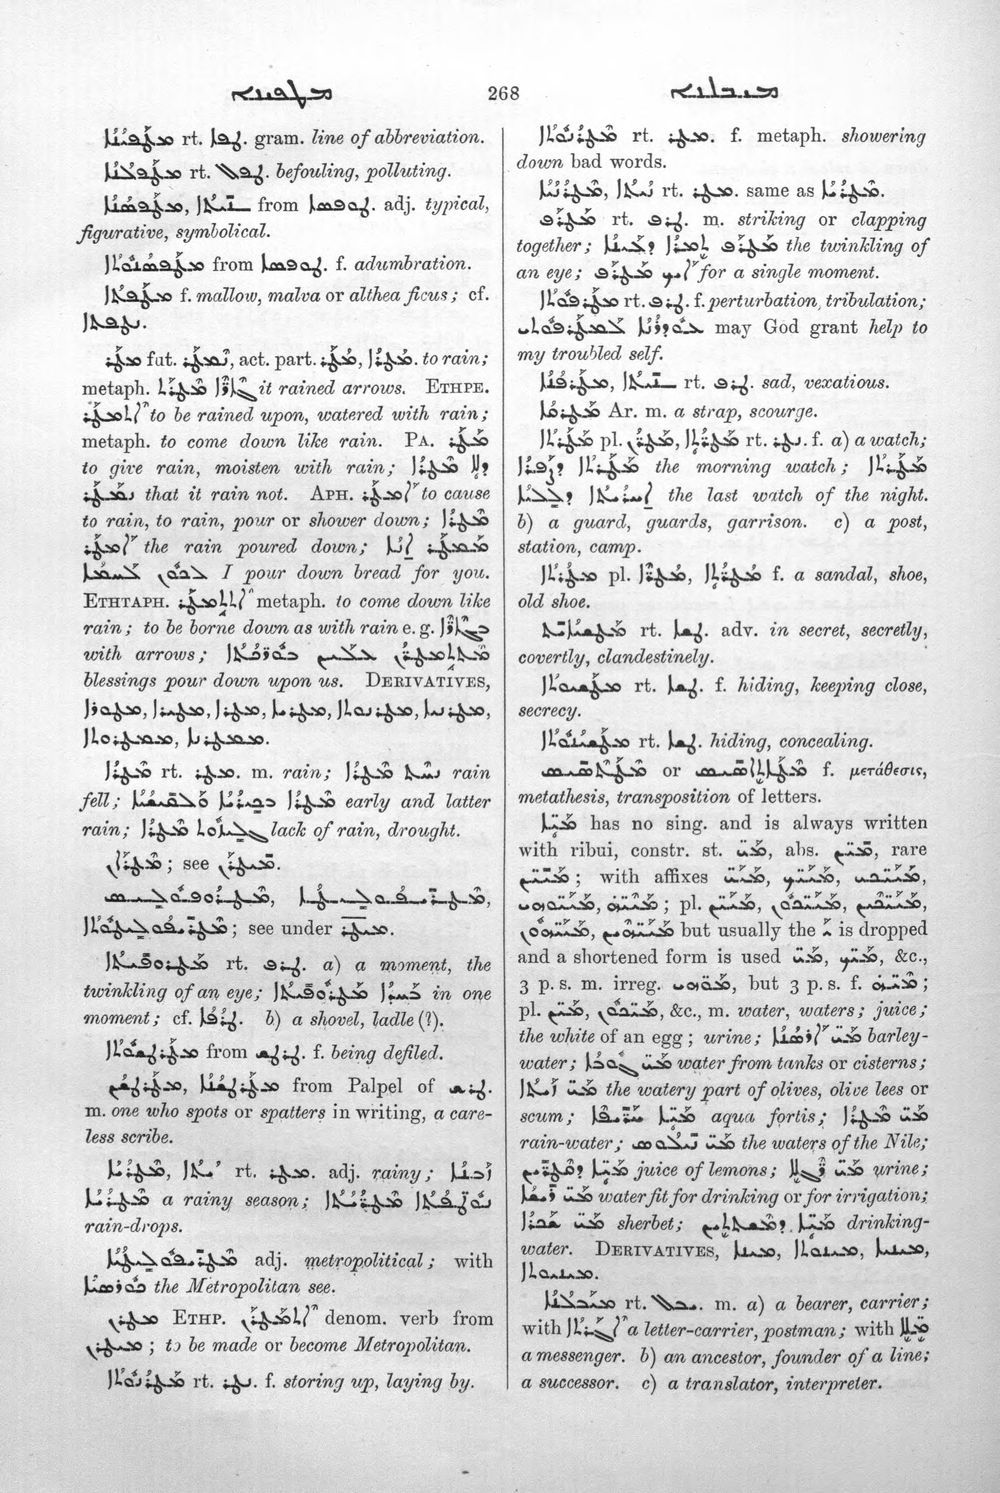 ܡܛܦܝܢܐ 268 ܡܝܒܠܢܐ
ܡܛܦܝܢܐ rt. ܛܦܐ. gram. line of abbreviation.
ܡܛܦܠܢܐ rt. ܛܦܠ. befouling, polluting.
ܡܛܦܣܢܐ, ܢܝܬܐ from ܛܘܦܣܐ. adj. typical,
figurative, symbolical.
ܡܛܦܣܢܘܬܐ from ܛܘܦܣܐ. f. adumbration.
ܡܛܦܬܐ f. mallow, malva or althea ficus; cf.
ܢܛܦܬܐ.
ܡܛܪ fut. ܢܡܛܪ, act. part. ܡܛܪ, ܡܛܪܐ. to rain;
metaph. ܡܛܪܬ ܓܐܪܐ it rained arrows. ETHPE.
ܐܬܡܛܪ to be rained upon, watered with rain;
metaph. to come down like rain. PA. ܡܛܪ
to give rain, moisten with rain; ܕܠܐ ܡܛܪܐ
ܢܡܛܪ that it rain not. APH. ܐܡܛܪ to cause
to rain, to rain, pour or shower down; ܡܛܪܐ
ܐܡܛܪ the rain poured down; ܡܡܛܪ ܐܢܐ
ܠܟܘܢ ܠܚܡܐ I pour down bread for you.
ETHTAPH. ܐܬܬܡܛܪ metaph. to come down like
rain; to be borne down as with rain e. g. ܒܓܐܪܐ
with arrows; ܡܬܬܡܛܪܢ ܥܠܝܢ ܒܘܪܟܬܐ
blessings pour down upon us. DERIVATIVES,
ܡܛܘܪܐ, ܡܛܝܪܐ, ܡܛܪܐ, ܡܛܪܝܐ, ܡܛܪܢܘܬܐ, ܡܛܪܢܝܐ,
ܡܡܛܪܘܬܐ, ܡܡܛܪܢܐ.
ܡܛܪܐ rt. ܡܛܪ. m. rain; ܢܚܬ ܡܛܪܐ rain
fell; ܡܛܪܐ ܒܟܝܪܝܐ ܘܠܩܝܫܝܐ early and latter
rain; ܓܠܝܙܘܬ ܡܛܪܐ lack of rain, drought.
ܡܛܪܐܢ; see ܡܝܛܪܢ.
ܡܛܪܘܦܘܠܝܛܝܣ, ܡܛܪܝܦܘܠܝܛܐ,
ܡܛܪܝܦܘܠܝܛܘܬܐ; see under ܡܝܛܪ.
ܡܛܪܘܦܝܬܐ rt. ܛܪܦ. a) a moment, the
twinkling of an eye; ܒܚܕܐ ܡܛܪܘܦܝܬܐ in one
moment; cf. ܛܪܦܐ. b) a shovel, ladle (?).
ܡܛܪܛܫܘܬܐ from ܛܪܛܫ. f. being defiled.
ܡܛܪܛܫܢ, ܡܛܪܛܫܢܐ from Palpel of ܛܪܫ.
m. one who spots or spatters in writing, a care-
less scribe.
ܡܛܪܝܐ, ܝܬܐ rt. ܡܛܪ. adj. rainy; ܙܒܢܐ
ܡܛܪܝܐ a rainy season; ܢܘܛܦܬܐ ܡܛܪܝܬܐ
rain-drops.
ܡܛܪܝܦܘܠܝܛܝܐ adj. metropolitical; with
ܟܘܪܣܝܐ the Metropolitan see.
ܡܛܪܢ ETHP. ܐܬܡܛܪܢ denom. verb from
ܡܝܛܪܢ; to be made or become Metropolitan.
ܡܛܪܢܘܬܐ rt. ܢܛܪ. f. storing up, laying by.
ܡܛܪܢܘܬܐ rt. ܡܛܪ. f. metaph. showering
down bad words.
ܡܛܪܢܝܐ, ܢܝܬܐ rt. ܡܛܪ. same as ܡܛܪܝܐ.
ܡܛܪܦ rt. ܛܪܦ. m. striking or clapping
together; ܡܛܪܦ ܬܡܪܐ ܕܥܝܢܐ the twinkling of
an eye; ܐܝܟ ܡܛܪܦ for a single moment.
ܡܛܪܦܘܬܐ rt. ܛܪܦ. f. perturbation, tribulation;
ܥܘܕܪܢܐ ܠܡܛܪܦܘܬܝ may God grant help to
my troubled self.
ܡܛܪܦܢܐ, ܢܝܬܐ rt. ܛܪܦ. sad, vexatious.
ܡܛܪܩܐ Ar. m. a strap, scourge.
ܡܛܪܬܐ pl. ܡܛܪܢ, ܡܛܪܬܐ rt. ܢܛܪ. f. a) a watch;
ܡܛܪܬܐ ܕܨܦܪܐ the morning watch; ܡܛܪܬܐ
ܐܚܪܝܬܐ ܕܠܠܝܐ the last watch of the night.
b) a guard, guards, garrison. c) a post,
station, camp.
ܡܛܪܬܐ pl. ܡܛܪܐ, ܡܛܪܬܐ f. a sandal, shoe,
old shoe.
ܡܛܫܝܐܝܬ rt. ܛܫܐ. adv. in secret, secretly,
covertly, clandestinely.
ܡܛܫܝܘܬܐ rt. ܛܫܐ. f. hiding, keeping close,
secrecy.
ܡܛܫܝܢܘܬܐ rt. ܛܫܐ. hiding, concealing.
ܡܛܬܣܝܣ or ܡܛܐܬܐܣܝܣ f. μετάθεσις,
metathesis, transposition of letters.
ܡܝܐ has no sing. and is always written
with ribui, constr. st. ܡܝ, abs. ܡܝܢ, rare
ܡܝܝܢ; with affixes ܡܝܝ, ܡܝܝܟ, ܡܝܝܟܝ,
ܡܝܘܗܝ, ܡܝܝܗ; pl. ܡܝܝܢ, ܡܝܝܟܘܢ, ܡܝܝܟܝܢ,
ܡܝܝܗܘܢ, ܡܝܝܗܝܢ but usually the is dropped
and a shortened form is used ܡܝ, ܡܝܟ, &c.,
3 p. s. m. irreg. ܡܘܗܝ, but 3 p. s. f. ܡܝܗ;
pl. ܡܝܢ, ܡܝܟܘܢ, &c., m. water, waters; juice;
the white of an egg; urine; ܡܝ ܐܪܣܢܐ barley-
water; ܡܝ ܓܘܒܐ water from tanks or cisterns;
ܡܝ ܙܝܬܐ the watery part of olives, olive lees or
scum; ܡܝܐ ܚܪܝܦܐ aqua fortis; ܡܝ ܡܛܪܐ
rain-water; ܡܝ ܢܝܠܘܣ the waters of the Nile;
ܡܝܐ juice of lemons; ܡܝ ܪܓܠܐ urine;
ܡܝ ܫܩܝܐ water fit for drinking or for irrigation;
ܡܝ ܫܟܪܐ sherbet; ܡܝܐ ܕܡܫܬܝܢ drinking-
water. DERIVATIVES, ܡܝܢܐ, ܡܝܢܘܬܐ, ܡܝܢܝܐ,
ܡܝܢܝܘܬܐ.
ܡܝܒܠܢܐ rt. ܝܒܠ. m. a) a bearer, carrier;
with ܐܓܪܬܐ a letter-carrier, postman; with ܡܠܐ
a messenger. b) an ancestor, founder of a line;
a successor. c) a translator, interpreter.